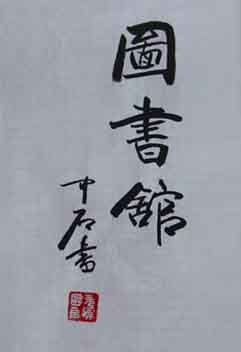 圖書舘
中石書